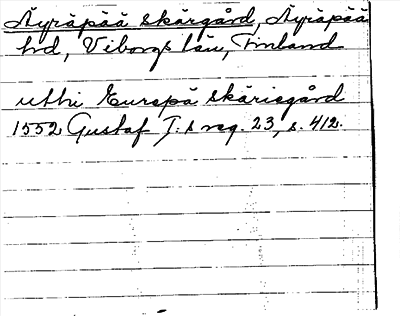 Äyräpää skärgård, Äyräpää
hd, Viborgs län, Finland
uthi Eurepä skäriegård
1552 Gustaf I:s reg. 23, s. 412.